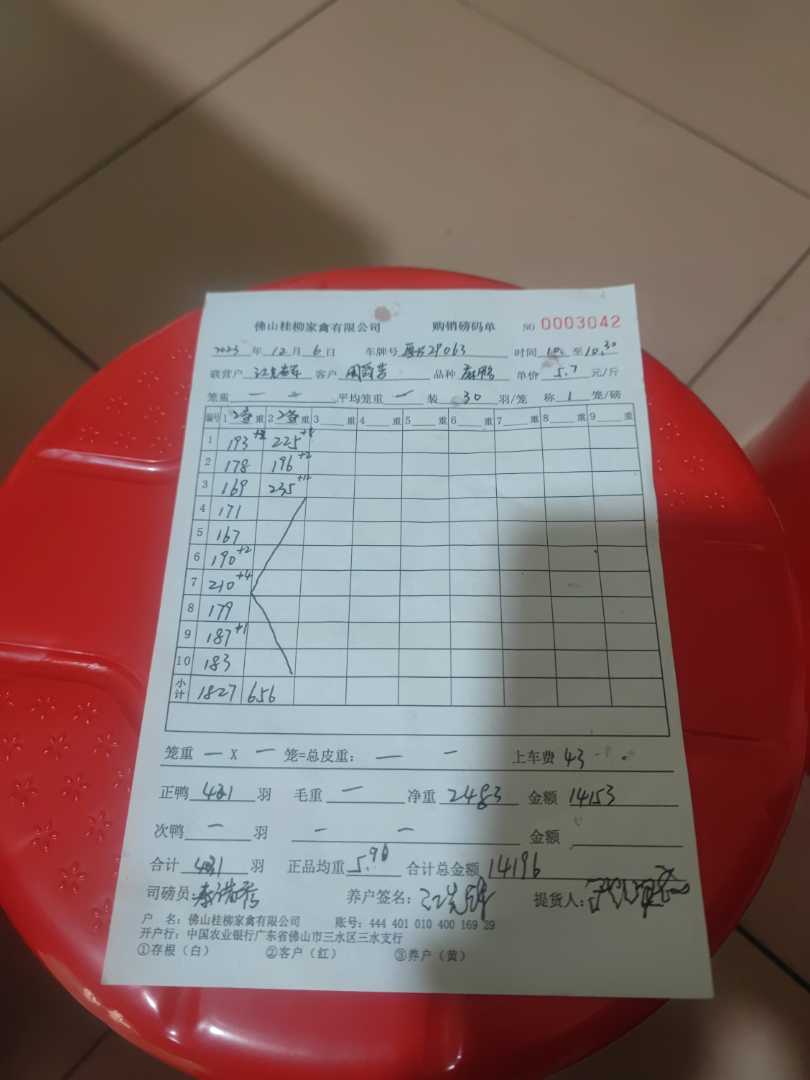 佛山桂柳家禽有限公司 购销磅码单 NO 0003042
2023 年 12 月 6 日 车牌号 29063 时间 10: 至 10.30
联营户 客户 品种 麻鸭 单价 5.7 元/斤
笼重 — — 平均笼重 — 装 30 羽/笼 称 1 笼/磅
编号 1 2 重 2 2 重 3 重 4 重 5 重 6 重 7 重 8 重 9 重
1 193 225
2 178 196+2
3 169 235
4 171
5 167
6 190+2
7 210+4
8 179
9 187+1
10 183
小计 1827 656
笼重 — X — 笼=总皮重: — — 上车费 43
正鸭 421 羽 毛重 — 净重 2483 金额 14153
次鸭 — 羽 — — 金额
合计 421 羽 正品均重 5.90 合计总金额 14196
司磅员: 养户签名: 提货人:
户 名: 佛山桂柳家禽有限公司 账号: 444 401 010 400 169 29
开户行: 中国农业银行广东省佛山市三水区三水支行
①存根（白） ②客户（红） ③养户（黄）